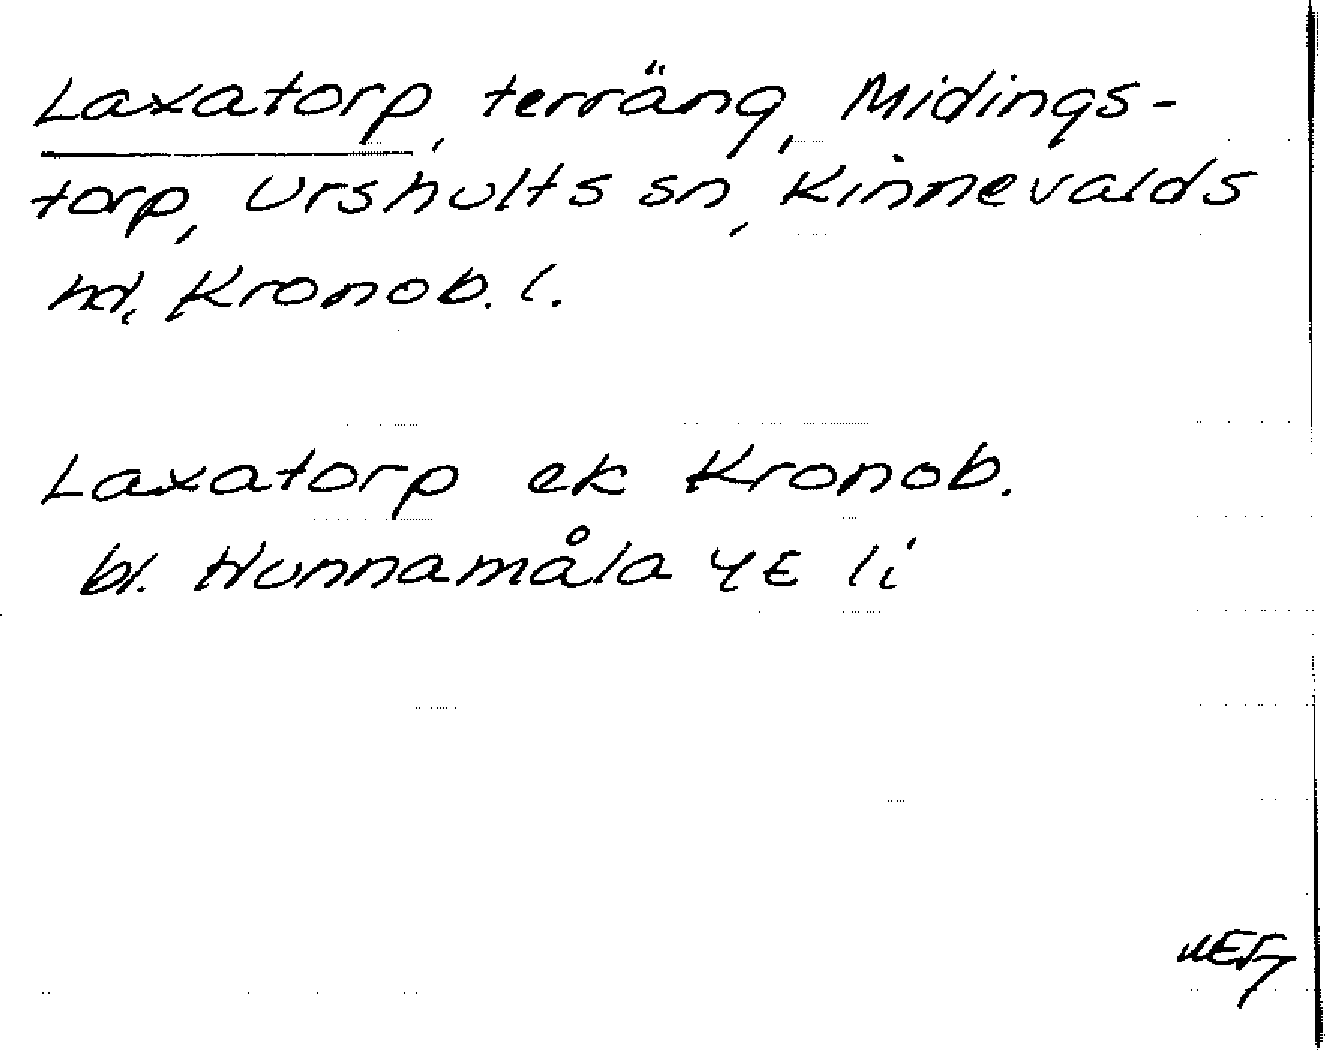 Laxatorp, terräng, Midings-
torp, Urshults sn, Kinnevalds
hd, Kronob. l.
Laxatorp ek Kronob.
bl. Hunnamåla 4E li